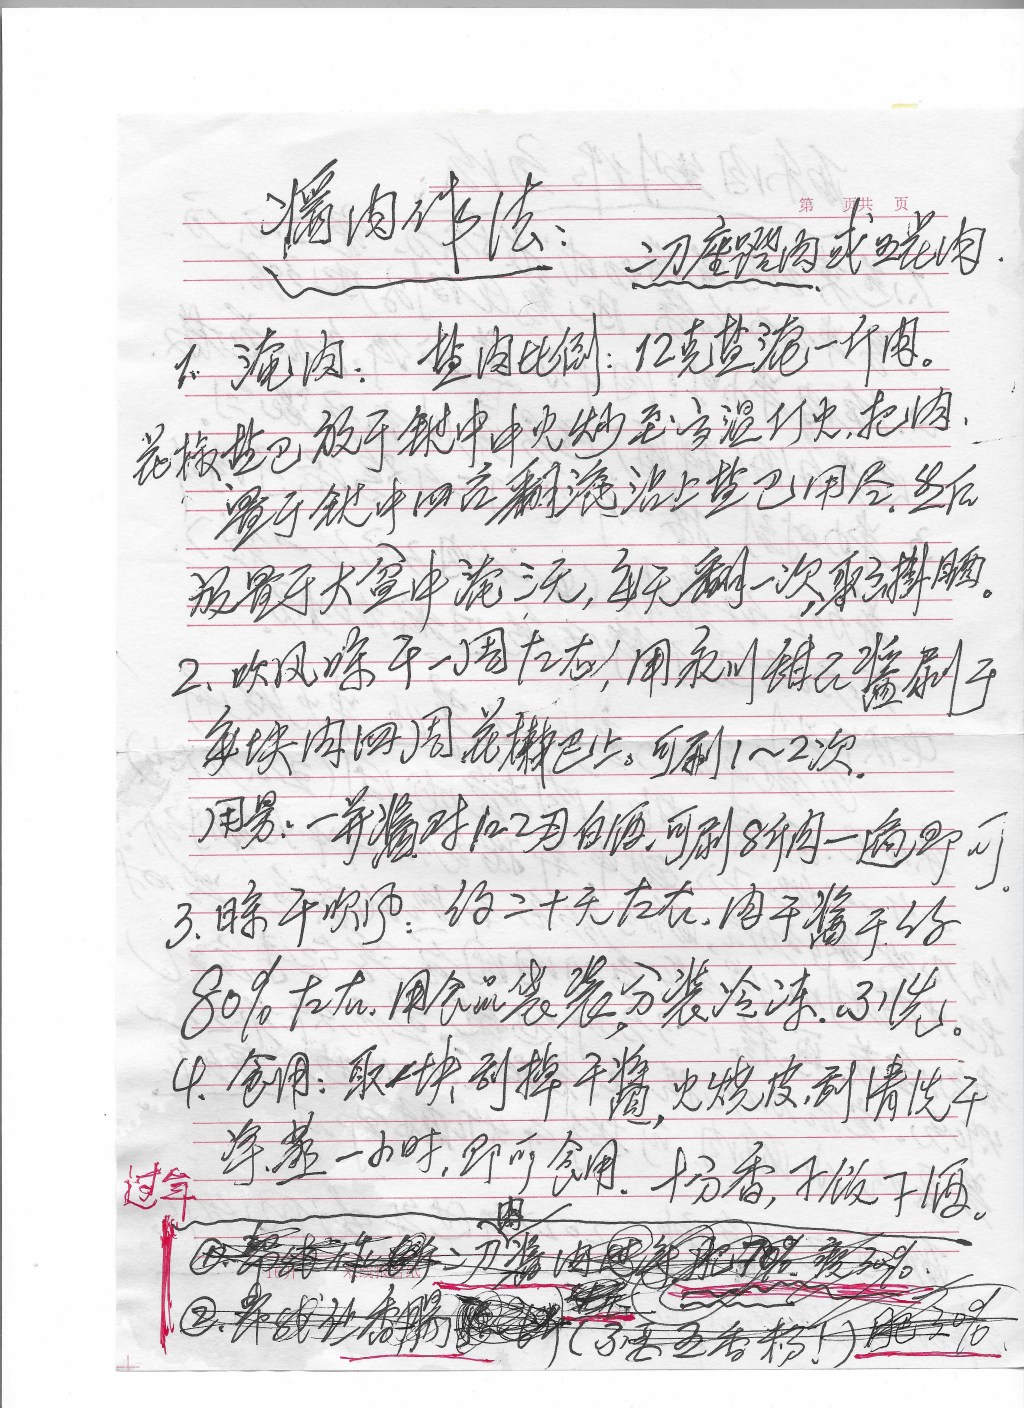 第 页共 页
酱肉作法：
二刀座蹬肉或五花肉.
1. 淹肉： 盐肉比例：12克盐淹一斤肉。
花椒盐巴放于锅中中火炒至高温灯火.把肉.
置于锅中四方翻淹沾上盐巴用尽.然后
放置于大盆中淹三天，每天翻一次，取出掛晒。
2、吹风晾干一周左右，用永川甜瓜酱刷于
每块肉四周 花椒巴上。可刷1～2次.
用男：一并酱对1.2两白酒.可刷8斤肉一遍即可.
3、晾干吹风：约二十天左右.肉干酱干约
80%左右.用食品袋装，分装冷冻.不洗。
4. 食用：取一块，刮掉干酱，火烧皮，刮清洗干
净.蒸一小时.即可食用.十分香，下饭下酒。
过年
肉
① 二刀酱肉 肥70% 瘦30%.
② 香肠 (不要五香粉！) 肥30%